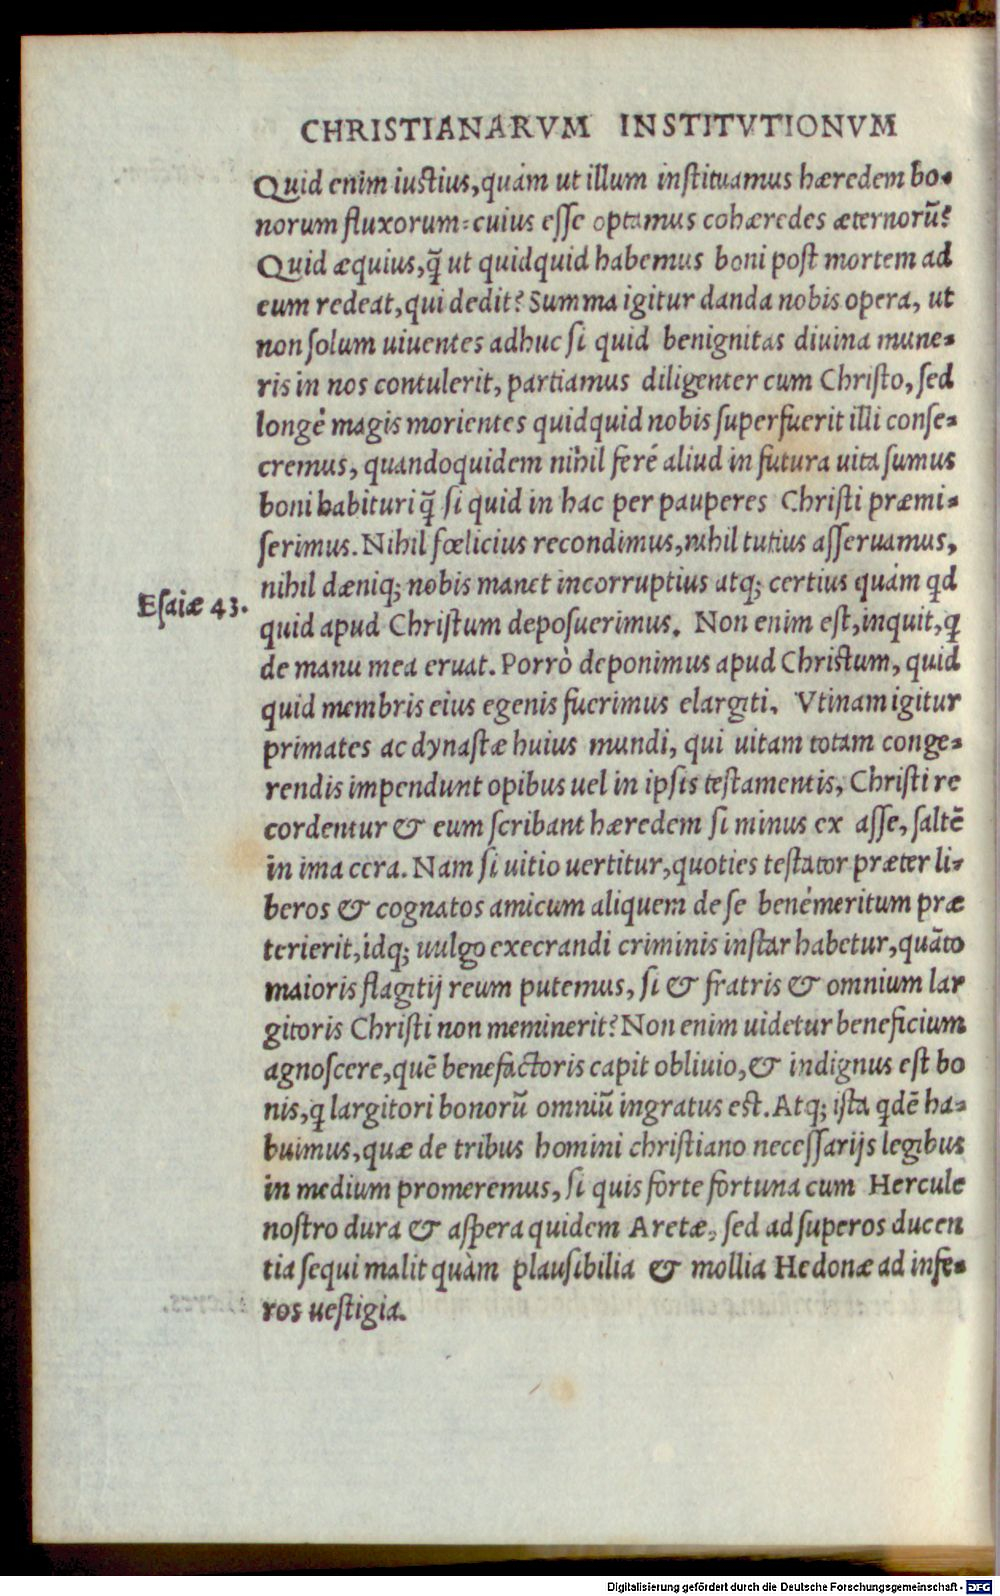 CHRISTIANARVM INSTITVTIONVM
Quid enim iustius, quám ut illum instituamus hæredem bo-
norum fluxorum: cuius esse optamus cohæredes æternorū?
Quid æquius, q̄ ut quidquid habemus boni post mortem ad
eum redeat, qui dedit? Summa igitur danda nobis opera, ut
non solum uiuentes adhuc si quid benignitas diuina mune-
ris in nos contulerit, partiamus diligenter cum Christo, sed
longé magis morientes quidquid nobis superfuerit illi conse-
cremus, quandoquidem nihil feré aliud in futura uita sumus
boni habituri q̄ si quid in hac per pauperes Christi præmi-
serimus. Nihil fœlicius recondimus, nihil tutius asseruamus,
nihil dæniq; nobis manet incorruptius atq; certius quám qd
Esaiæ 43.
quid apud Christum deposuerimus. Non enim est, inquit, q
de manu mea eruat. Porrò deponimus apud Christum, quid
quid membris eius egenis fuerimus elargiti. Vtinam igitur
primates ac dynastæ huius mundi, qui uitam totam conge-
rendis impendunt opibus uel in ipsis testamentis, Christi re
cordentur & eum scribant hæredem si minus ex asse, saltē
in ima cera. Nam si uitio uertitur, quoties testator præter li-
beros & cognatos amicum aliquem de se benémeritum præ
terierit, idq; uulgo execrandi criminis instar habetur, quāto
maioris flagitij reum putemus, si & fratris & omnium lar
gitoris Christi non meminerit? Non enim uidetur beneficium
agnoscere, quē benefactoris capit obliuio, & indignus est bo
nis, q largitori bonorū omniū ingratus est. Atq; ista qdē ha-
buimus, quæ de tribus homini christiano necessarijs legibus
in medium promeremus, si quis forte fortuna cum Hercule
nostro dura & aspera quidem Aretæ, sed ad superos ducen
tia sequi malit quàm plausibilia & mollia Hedonæ ad infe-
ros uestigia.
Digitalisierung gefördert durch die Deutsche Forschungsgemeinschaft - DFG